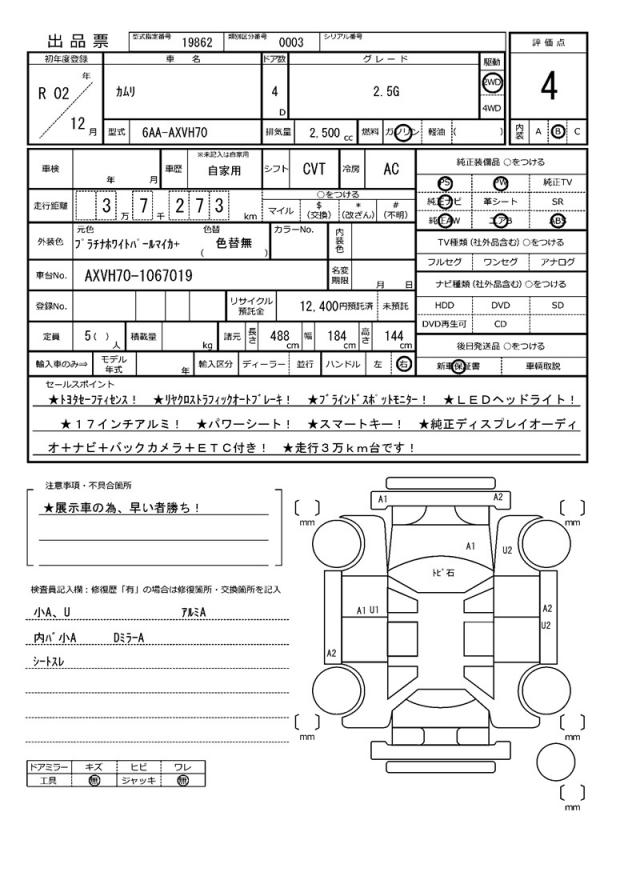 出品票 型式指定番号 19862 類別区分番号 0003 シリアル番号
評価点
4
内装 A B C
初年度登録 車名 ドア数 グレード 駆動
R 02 年 12 月 カムリ 4 D 2.5G 2WD 4WD
型式 6AA-AXVH70 排気量 2,500 cc 燃料 ガソリン 軽油 ( )
車検 年 月 車歴 ※未記入は自家用 自家用 シフト CVT 冷房 AC
走行距離 3 万 7 千 2 7 3 km ○をつける
マイル $ (交換) * (改ざん) # (不明)
外装色 元色 プラチナホワイトパールマイカ+ 色替 ( 色替無 ) カラーNo. 内装色
車台No. AXVH70-1067019 名変期限 月 日
登録No. リサイクル預託金 12,400円預託済 未預託
定員 5( ) 人 積載量 kg 諸元 長さ 488 cm 幅 184 cm 高さ 144 cm
輸入車のみ⇒ モデル年式 年 輸入区分 ディーラー 並行 ハンドル 左 右
純正装備品 ○をつける
PS PW 純正TV
純正ナビ 革シート SR
純正AW エアB ABS
TV種類 (社外品含む) ○をつける
フルセグ ワンセグ アナログ
ナビ種類 (社外品含む) ○をつける
HDD DVD SD
DVD再生可 CD
後日発送品 ○をつける
新車保証書 車輌取説
セールスポイント
★トヨタセーフティセンス! ★リヤクロストラフィックオートブレーキ! ★ブラインドスポットモニター! ★LEDヘッドライト!
★17インチアルミ! ★パワーシート! ★スマートキー! ★純正ディスプレイオーディ
オ+ナビ+バックカメラ+ETC付き! ★走行3万km台です!
注意事項・不具合箇所
★展示車の為、早い者勝ち!
検査員記入欄:修復歴「有」の場合は修復箇所・交換箇所を記入
小A、U アルミA
内バ小A DミラーA
シートスレ
ドアミラー キズ ヒビ ワレ
工具 無 ジャッキ 無
A1 A2
[ ] mm [ ] mm
A1 U2
トビ石
A1 U1 A2
U2
A2
[ ] mm [ ] mm
[ ] mm